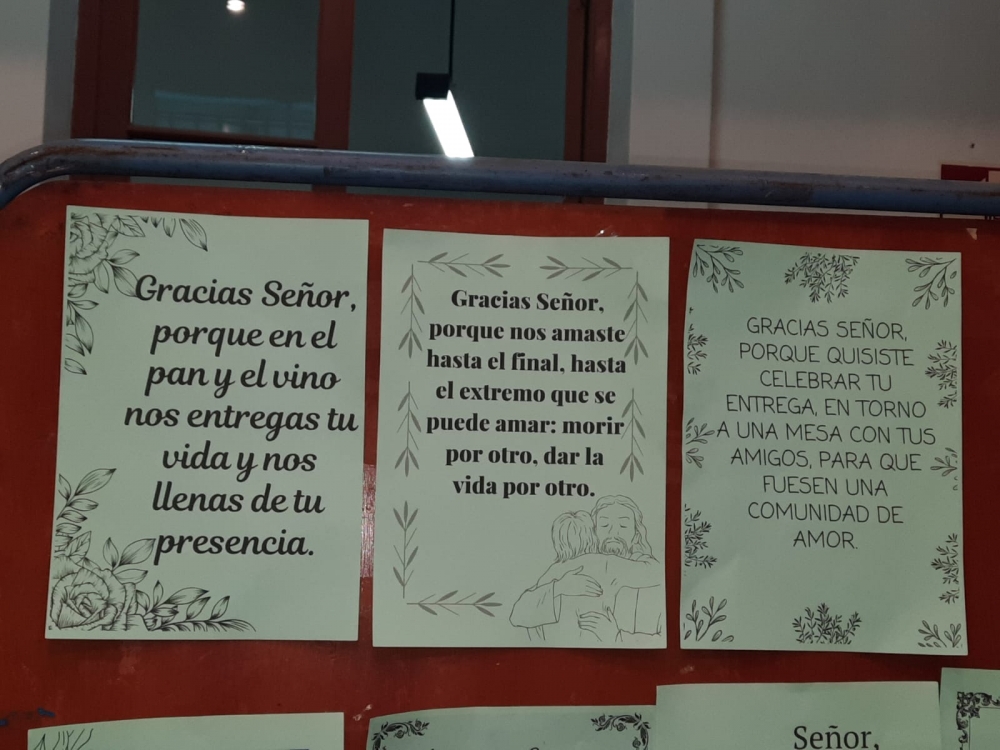 Gracias Señor,
porque en el
pan y el vino
nos entregas tu
vida y nos
llenas de tu
presencia.
Gracias Señor,
porque nos amaste
hasta el final, hasta
el extremo que se
puede amar: morir
por otro, dar la
vida por otro.
GRACIAS SEÑOR,
PORQUE QUISISTE
CELEBRAR TU
ENTREGA, EN TORNO
A UNA MESA CON TUS
AMIGOS, PARA QUE
FUESEN UNA
COMUNIDAD DE
AMOR.
Señor,